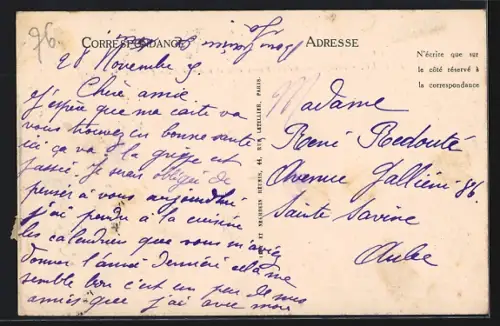 76
CORRESPONDANCE
28 Novembre
Chère amie
j'espère que ma carte va
vous trouvez en bonne santé
ici ça va la grippe est
passée Je suis obligé de
penser à vous aujourd'hui
j'ai pendu à la cuisine
les calendrier que vous m'aviez
donner l'année dernière cela me
semble bon c'est un peu de mes
amies que j'ai avec moi
ADRESSE
N'écrire que sur
le côté réservé à
la correspondance
Madame
René Redouté
Avenue Galliéni 86
Sainte Savine
Aube
ET NEURDEIN RÉUNIS, 44, RUE LETELLIER, PARIS.